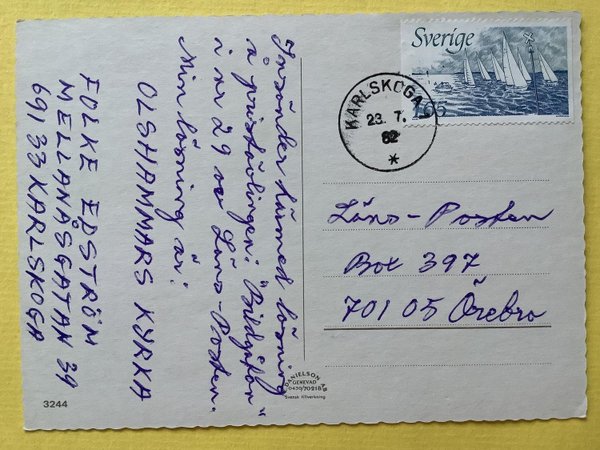 Insänder härmed lösning
å pristävlingen: "Bildgåfon"
i nr 29 av Läns-Posten.
Min lösning är:
OLSHAMMARS KYRKA
FOLKE EDSTRÖM
MELLANÅSGATAN 39
691 33 KARLSKOGA
Sverige
165
KARLSKOGA
23. 7.
82
*
Läns-Posten
Box 397
701 05 Örebro
DANIELSON AB
GENEVAD
0430/70218
Svensk tillverkning
3244